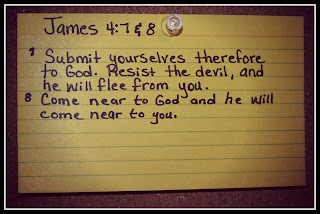 James 4:7 & 8
7 Submit yourselves therefore
to God. Resist the devil, and
he will flee from you.
8 Come near to God and he will
come near to you.